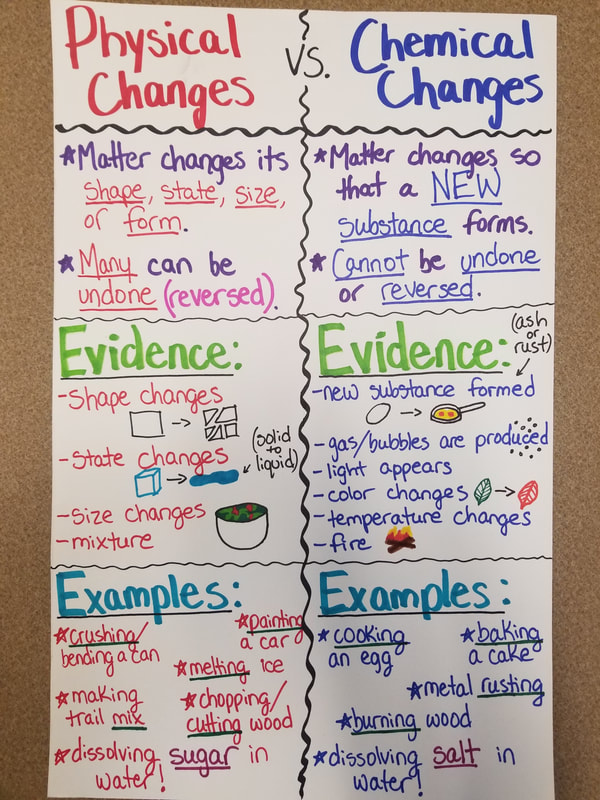 Physical
Changes
vs.
Chemical
Changes
★Matter changes its
shape, state, size,
or form.
★Many can be
undone (reversed).
★Matter changes so
that a NEW
substance forms.
★Cannot be undone
or reversed.
Evidence:
-shape changes
-state changes
(solid
to
liquid)
-size changes
-mixture
Evidence:
(ash
or
rust)
-new substance formed
-gas/bubbles are produced
-light appears
-color changes
-temperature changes
-fire
Examples:
★crushing/
bending a can
★painting
a car
★melting ice
★making
trail mix
★chopping/
cutting wood
★dissolving sugar in
water!
Examples:
★cooking
an egg
★baking
a cake
★metal rusting
★burning wood
★dissolving salt in
water!